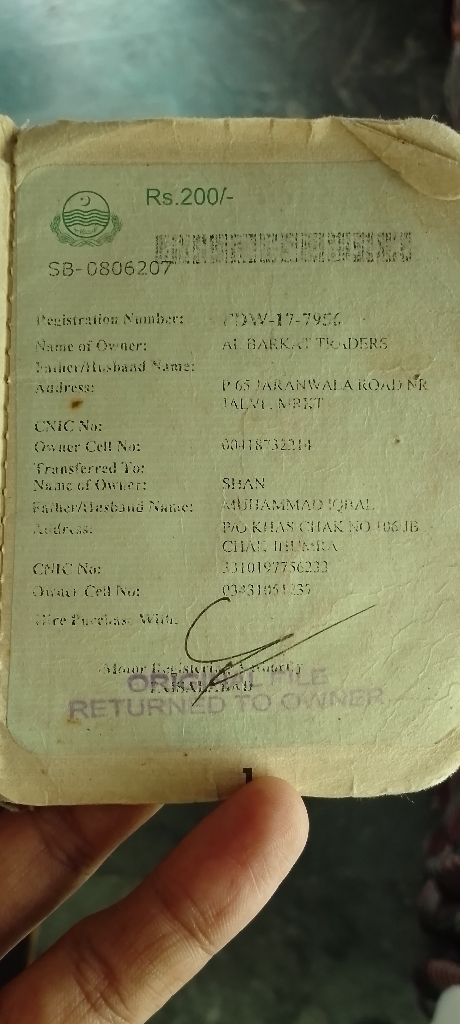 Rs.200/-
SB-0806207
Registration Number: FDW-17-7956
Name of Owner: AL BARKAT TRADERS
Father/Husband Name:
Address: P 65 JARANWALA ROAD NR
MRKT
CNIC No:
Owner Cell No: 00418732214
Transferred To:
Name of Owner: SHAN
Father/Husband Name: MUHAMMAD IQBAL
Address: P/O KHAS CHAK NO 106 JB
CHAK JHUMRA
CNIC No: 3310197756233
Owner Cell No:
Hire Purchase With:
Motor Registering Authority
FAISALABAD
ORIGINAL FILE
RETURNED TO OWNER
1